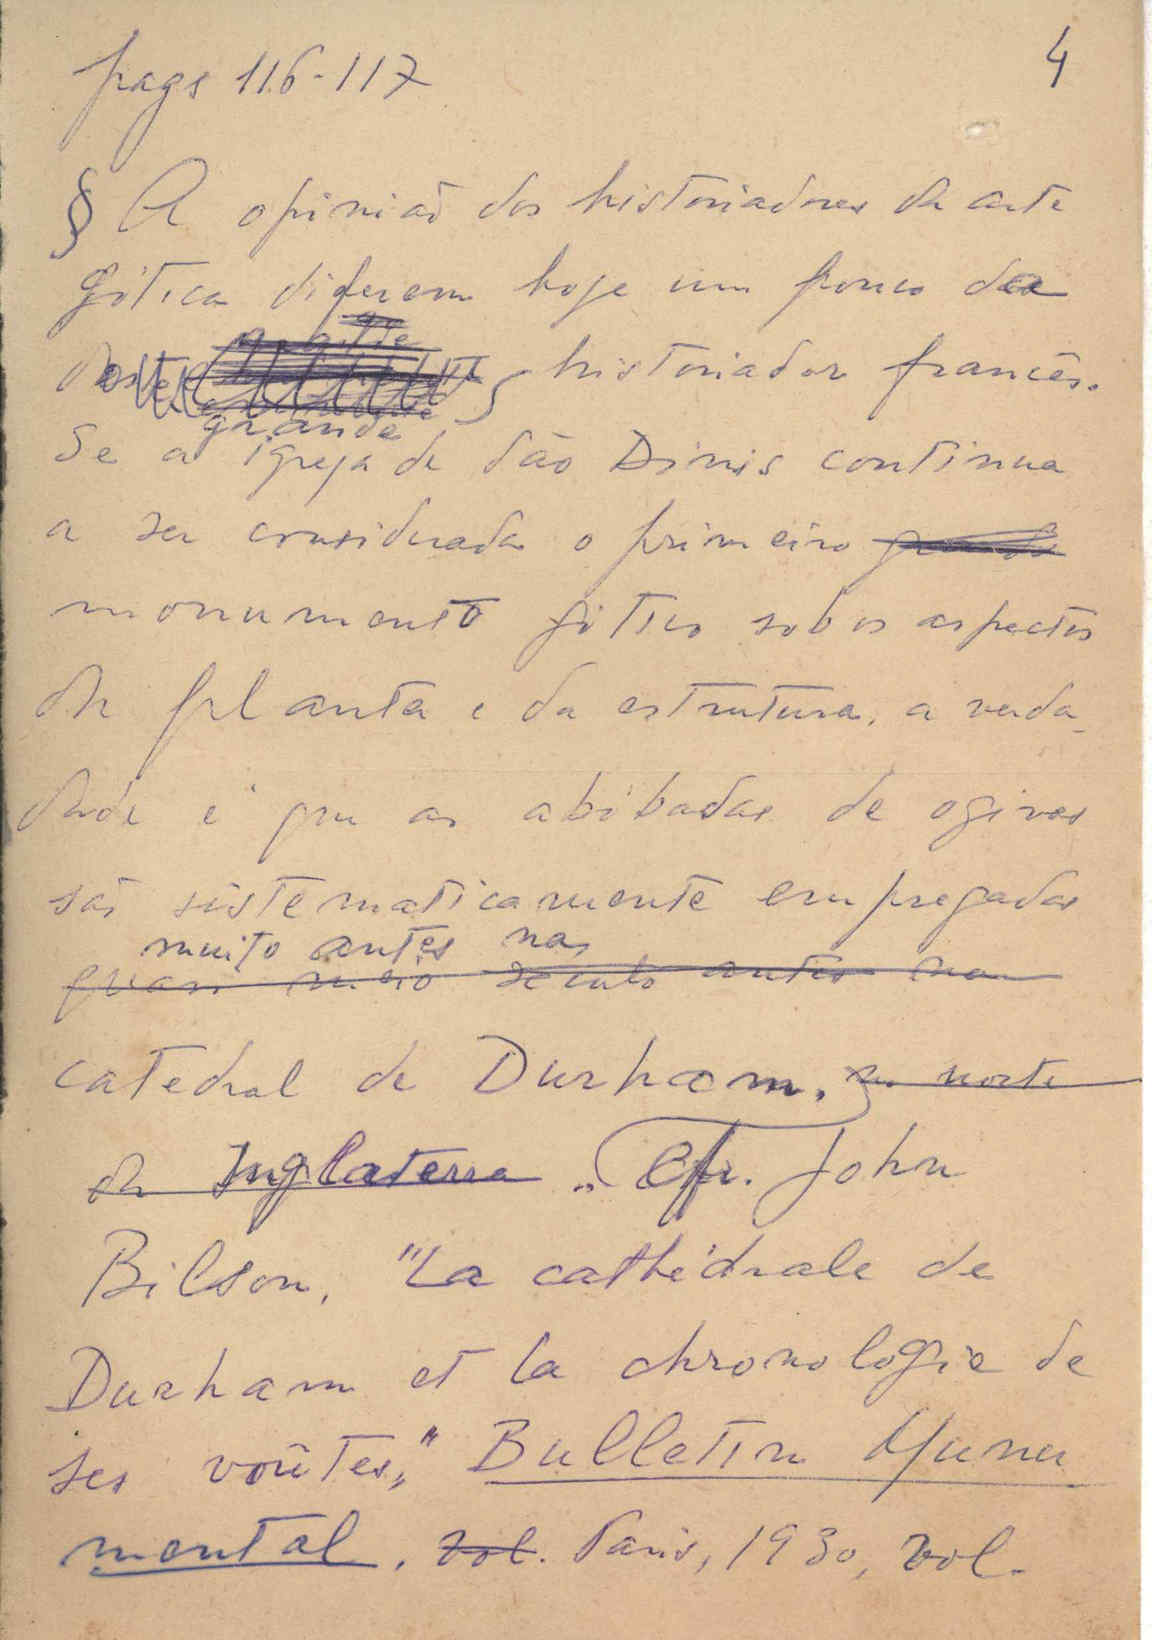 pags 116-117
4
§ A opinião dos historiadores da arte
gótica diferem hoje um pouco da
deste historiador francês.
grande
Se a igreja de São Dinis continua
a ser considerada o primeiro grande
monumento gótico sob os aspectos
da planta e da estrutura, a verda-
dade é que as abóbadas de ogivas
são sistematicamente empregadas
muito antes na
quasi meio seculo antes na
catedral de Durham, no norte
da Inglaterra. Cfr. John
Bilson, "La cathédrale de
Durham et la chronologie de
ses voûtes," Bulletin Monu
mental, vol. Paris, 1930, vol.